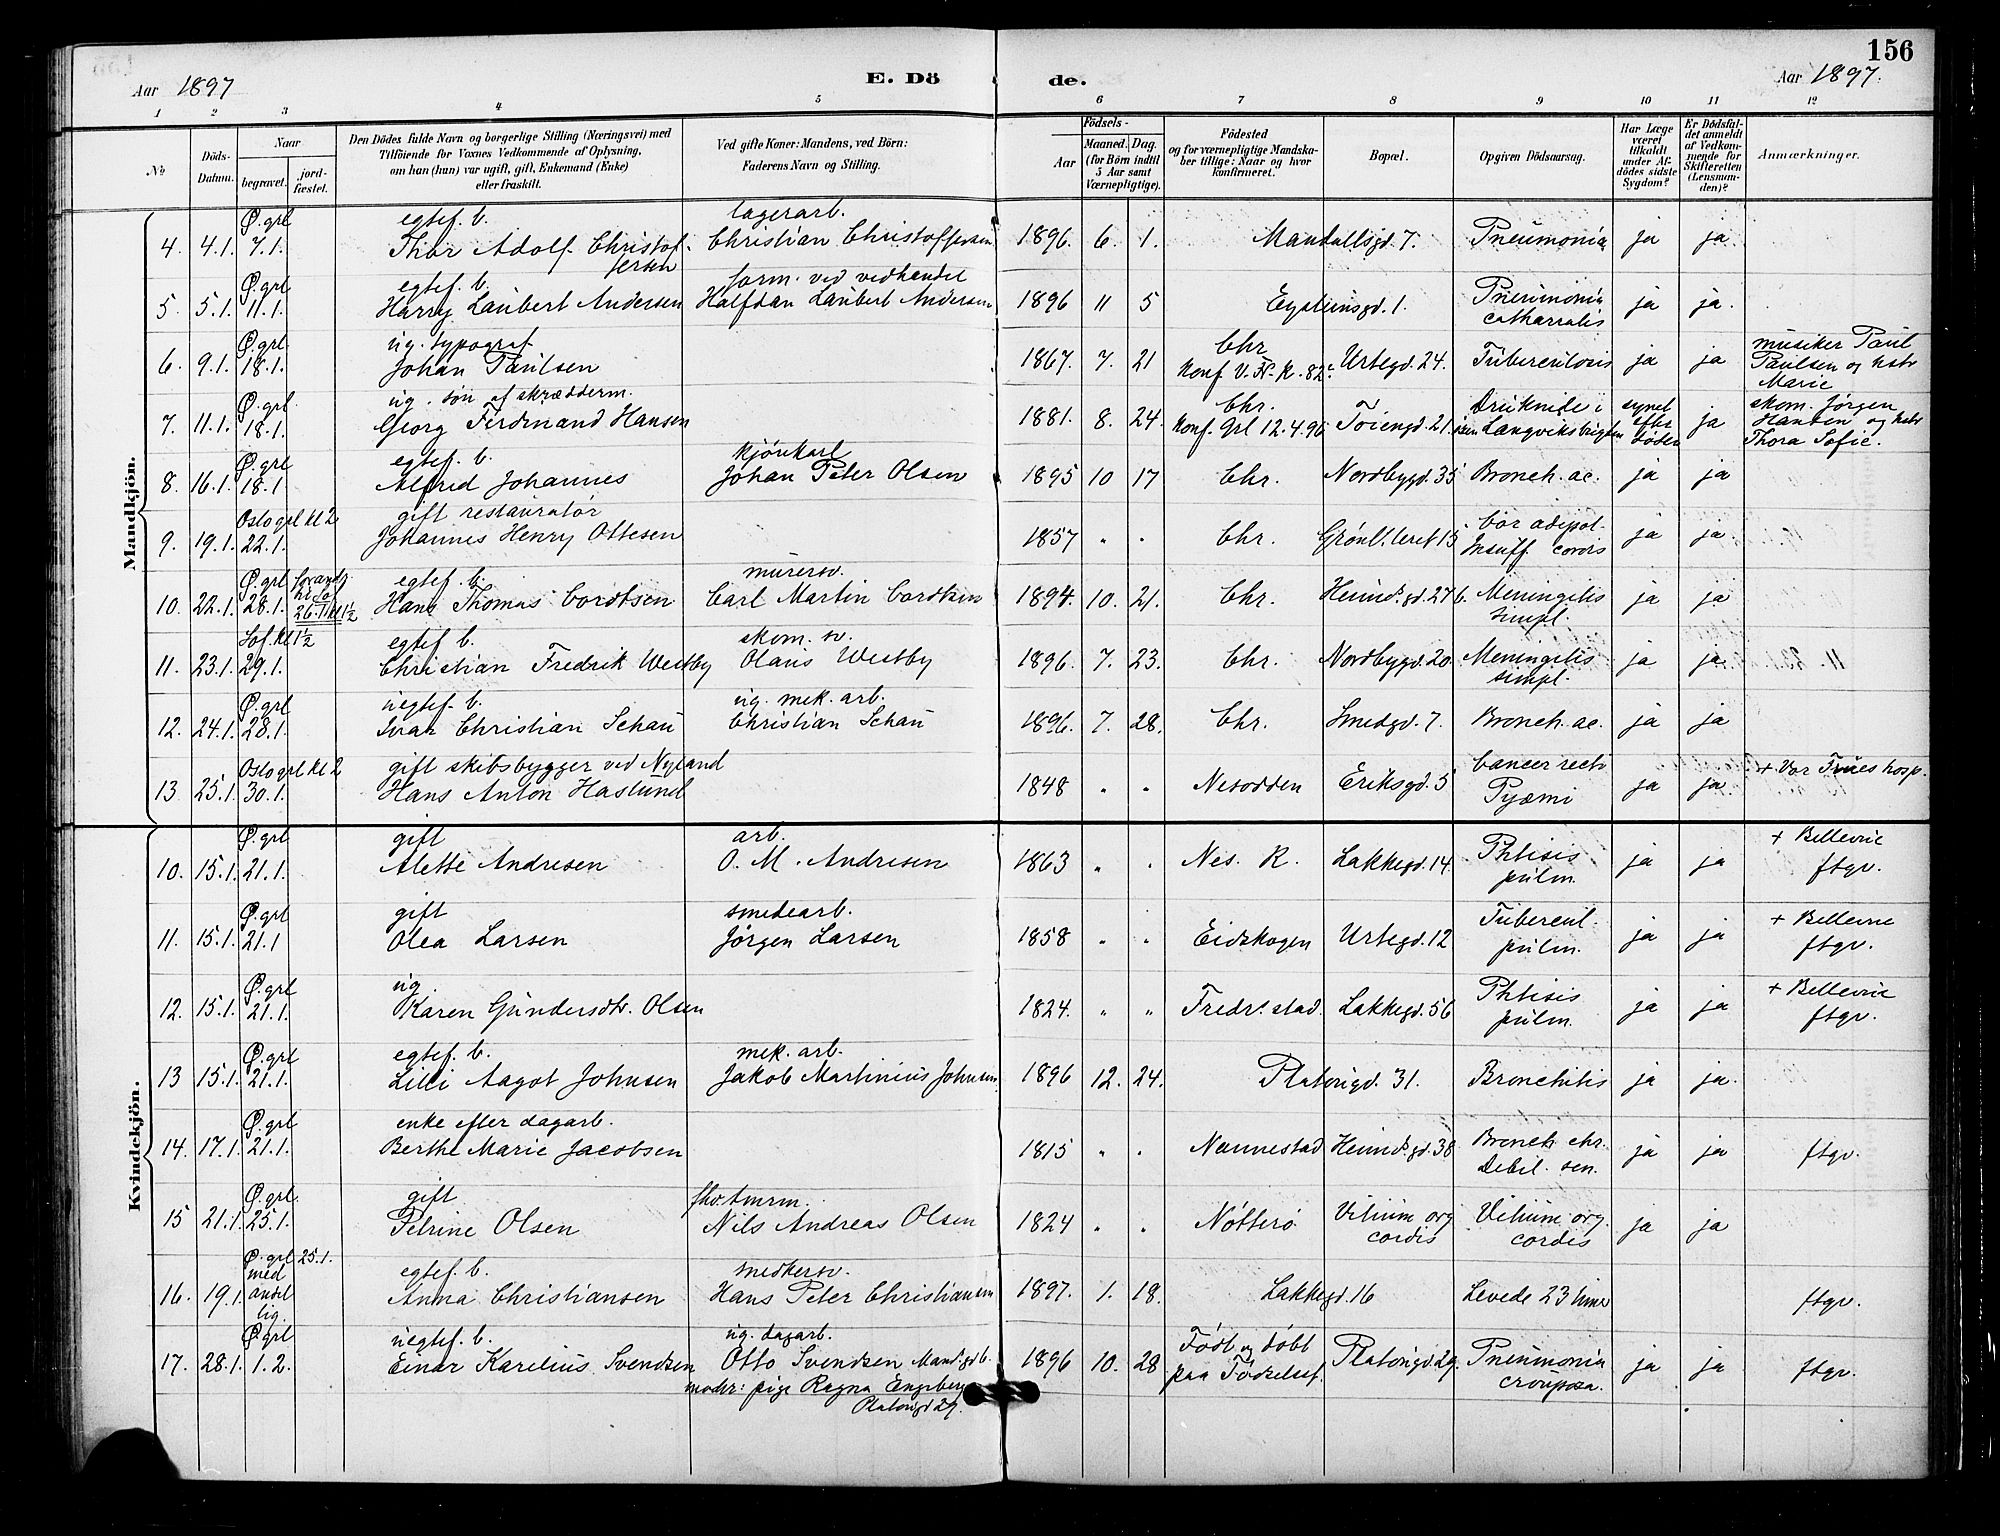 156
Aar 1897 E. Dö de. Aar 1897.
1 2 3 4 5 6 7 8 9 10 11 12
№
Döds-Datum.
Naar
begravet.
jord-fæstet.
Den Dödes fulde Navn og borgerlige Stilling (Næringsvei) med
Tilföiende for Voxnes Vedkommende af Oplysning,
om han (hun) var ugift, gift, Enkemand (Enke)
eller fraskilt.
Ved gifte Koner: Mandens, ved Börn:
Faderens Navn og Stilling.
Födsels-
Aar
Maaned. Dag.
(for Börn indtil
5 Aar samt
Værnepligtige).
Födested
og for værnepligtige Mandska-
ber tillige: Naar og hvor
konfirmeret.
Bopæl.
Opgiven Dödsaarsag.
Har Læge
været
tilkaldt
under Af-
dödes sidste
Sygdom?
Er Dödsfal-
det anmeldt
af Vedkom-
mende for
Skifteretten
(Lensman-
den)?
Anmærkninger.
Mandkjön.
Ø. grl egtef. b. lagerarb.
4. 4.1. 7.1. Thor Adolf Christof- Christian Christoffersen 1896. 6. 1. Mandallsgd. 7. Pneumonia ja ja
fersen
Ø. grl egtef. b. form. ved vedhandel
5. 5.1. 11.1. Harry Laubert Andersen Halfdan Laubert Andersen 1896 11 5 Eysteinsgd. 1. Pneumonia ja ja.
catharralis
Ø. grl ug. typograf Chr. musiker Paul
6. 9.1. 18.1. Johan Paulsen 1867. 7. 21 Konf. V. F. K. 82 Urtegd. 24. Tuberculosis ja ja Paulsen og
Marie
Ø. grl ug. søn af skrædderm. Chr. Druknede i synet skom. Jörgen
7. 11.1. 18.1. Georg Ferdinand Hansen 1881. 8. 24. Konf. Grl 12.4.96 Töiengd. 21. Langviksbugten efter ja Hansen og
døden Thora Sofie.
Ø. grl egtef. b. kjørekarl
8. 16.1. 18.1 Alfrid Johannes Johan Peter Olsen 1895 10 17 Chr. Nordbygd. 35 Bronch. ac. ja ja
Oslo grl kl 2 gift restauratör Cor adipos.
9. 19.1. 22.1. Johannes Henry Ottesen 1857 " " Chr. Grønl. leret 15 Insuff. cordis ja ja.
Ø. grl egtef. b. murersv.
10. 22.1. 28.1. 26.1 kl 1½ Hans Thomas Cordtsen Carl Martin Cordtsen 1894. 10. 21. Chr. Heimd. gd. 27 b. Meningitis ja ja
simpl.
Sof. kl 1½ egtef. b. skom. sv.
11. 23.1. 29.1. Christian Fredrik Westby Olaus Westby 1896. 7. 23. Chr. Nordbygd. 20. Meningitis ja ja.
simpl.
Ø. grl uegtef. b. ug. mek. arb.
12. 24.1. 28.1. Ivar Christian Schau Christian Schau 1896. 7. 28. Chr. Smedgd. 7. Bronch. ac. ja ja
Oslo grl kl 2 gift skibsbygger ved Nyland Cancer recti + Vor Frues hosp.
13 25.1. 30.1. Hans Anton Haslund 1848 " " Nesodden Eriksgd. 5 Pyæmi ja ja
Kvindekjön.
Ø. grl gift arb. + Bellevue
10. 15.1. 21.1. Alette Andresen O. M. Andresen 1863 " " Nes. R. Lakkegd. 14. Phtisis ja ja ftgv.
pulm.
Ø. grl gift smedearb. + Bellevue
11. 15.1. 21.1 Olea Larsen Jørgen Larsen 1858 " " Eidskogen Urtegd. 12 Tubercul. ja ja ftgv.
pulm.
Ø. grl ug. + Bellevue
12. 15.1. 21.1. Karen Gundersdtr. Olsen 1824. " " Fredr. stad. Lakkegd. 56 Phtisis ja ja ftgv.
pulm.
Ø. grl egtef. b. mek. arb.
13 15.1. 21.1. Lilli Aagot Johnsen Jakob Martinius Johnsen 1896 12. 24. Platousgd. 31. Bronchitis ja ja.
Ø. grl enke efter dagarb. Bronch. chr.
14. 17.1. 21.1. Berthe Marie Jacobsen 1815 " " Nannestad Heimd. gd. 38 Debil. sen. ja ja ftgv.
Ø. grl. gift fhv. tmrm.
15 21.1. 25.1. Petrine Olsen Nils Andreas Olsen 1824 " " Nötterö Vitium org. Vitium org. ja ja
cordis cordis
Ø. grl 25.1. egtef. b. snedkersv.
16. 19.1. med andet lig. Anna Christiansen Hans Peter Christiansen 1897. 1. 18. Lakkegd. 16 Levede 23 timer ftgv.
Ø. grl uegtef. b. ug. dagarb. Födt og döbt
17. 28.1. 1.2. Einar Karelius Svendsen Otto Svendsen Mand. gd b. 1896 10. 28 paa Födselsst. Platousgd. 29. Pneumonia ja ja ftgv.
moder: pige Ragna Engeberg crouposa.
Platousgd 29.